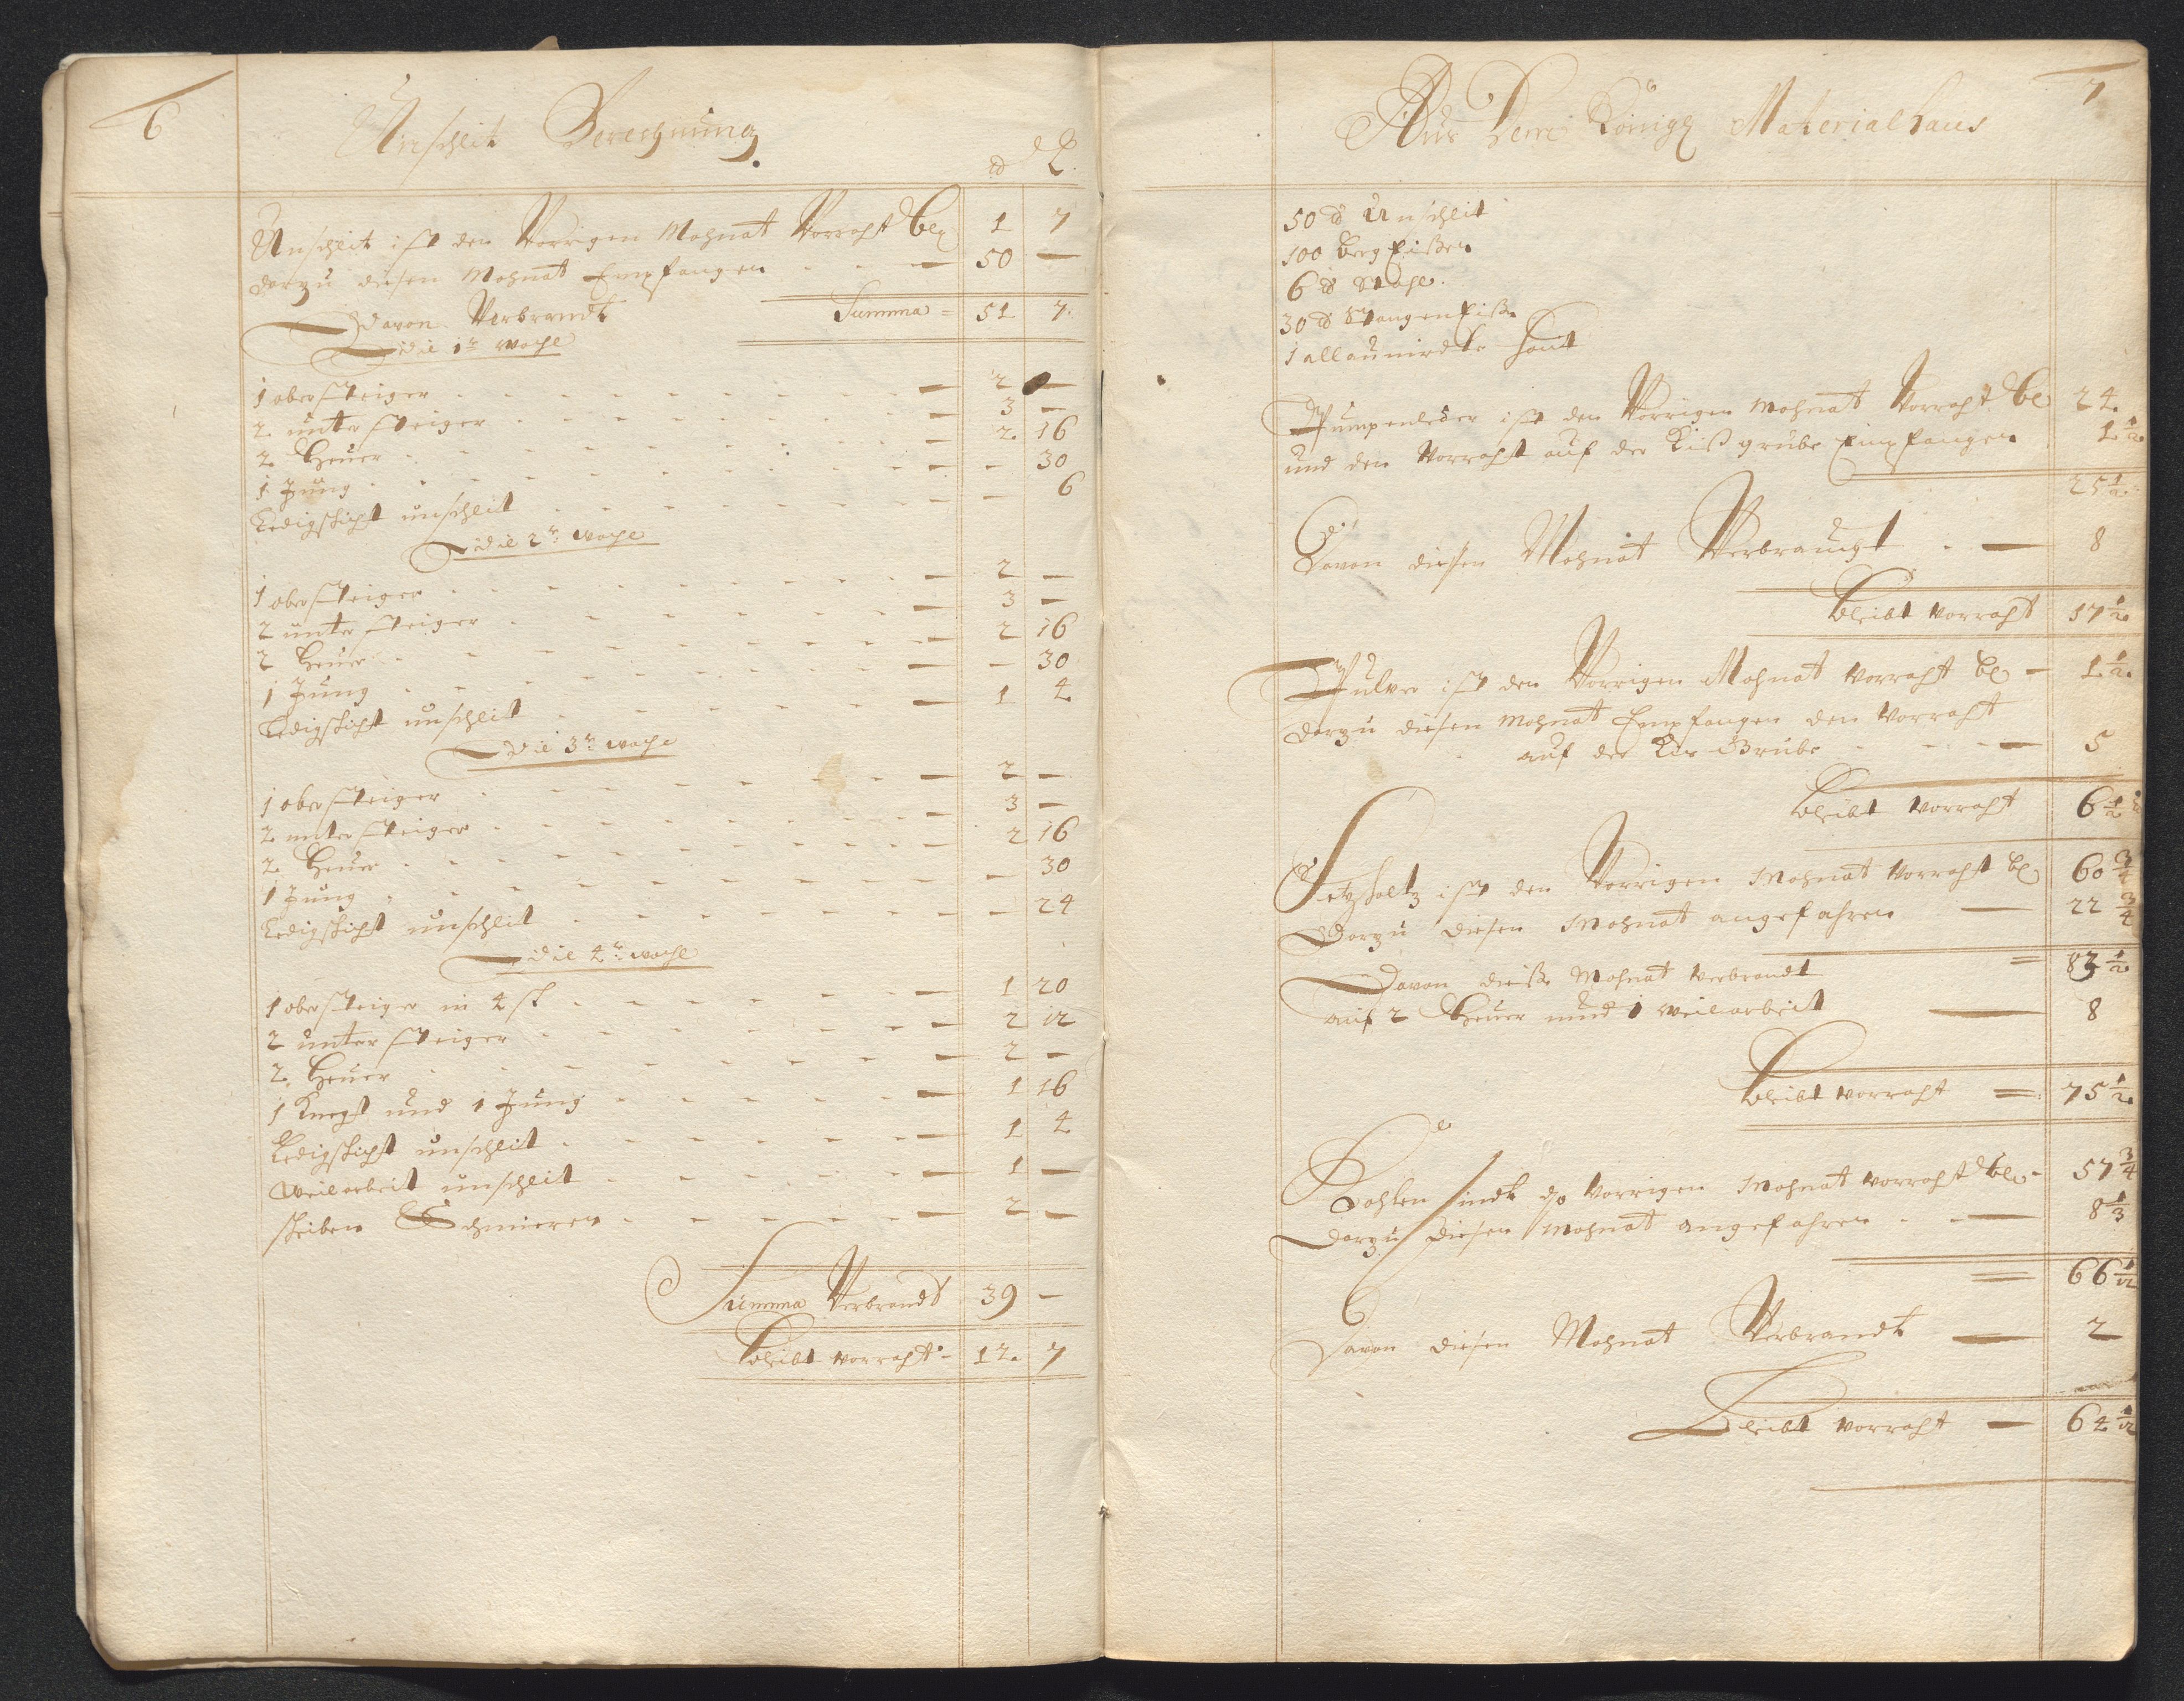 6
Unschlit Berechnung
℔ L
Unschlit ist den Vorrigen Mohnat Vorraht bl 1 7
darzu diesen Mohnat Empfangen — 50 —
Summa = 51 7
Davon Verbrandt
die 1te woche
1 obersteiger — 2 —
2 untersteiger — 3 —
2 Heuer — 2 16
1 Jung — - 30
Ledigschicht unschlit — 6
die 2te woche
1 obersteiger — 2 —
2 untersteiger — 3 —
2 Heuer — 2 16
1 Jung — 30
Ledigschicht unschlit — 1 4
die 3te woche
1 obersteiger — 2 —
2 untersteiger — 3 —
2 Heuer — 2 16
1 Jung — 30
Ledigschicht unschlit — 24
die 4te woche
1 obersteiger in 4 sh — 1 20
2 untersteiger — 2 12
2 Heuer — 2 —
1 Knecht und 1 Jung — 1 16
Ledigschicht unschlit — 1 4
Weilarbeit unschlit — 1 —
scheiben Schmieren — 2 —
Summa Verbrandt 39 —
bleibt vorraht 12 7
7
Aus Dem Königl Materialhaus
50 ℔ Unschlit
100 berg Eißen
6 ℔ Stahl
30 ℔ Stangen Eißen
1 allaunirdte haut
Pumpenleder ist den Vorrigen Mohnat Vorraht bl 24
und den Vorraht auf der Kißgrube Empfangen 1 1/2
25 1/2
Davon diesen Mohnat Verbraucht — 8
bleibt vorraht 17 1/2
Pulver ist den Vorrigen Mohnat vorraht bl — 1 1/2
darzu diesen Mohnat Empfangen den vorraht
auf der Kis Grube — 5
bleibt vorraht 6 1/2
Setzholtz ist den Vorrigen Mohnat vorraht bl 60 3/4
Darzu diesen Mohnat angefahren — 22 3/4
= 83 1/2
Davon dießen Mohnat verbrandt
auf 2 Heuer und 1 weilarbeit — 8
bleibt vorraht = 75 1/2
Kohlen sindt des vorrigen Mohnat vorraht bl 57 3/4
Darzu diesen Mohnat angefahren — 8 1/3
= 66 1/12
Davon diesen Mohnat Verbrandt — 2
Bleibt vorraht — 64 1/12